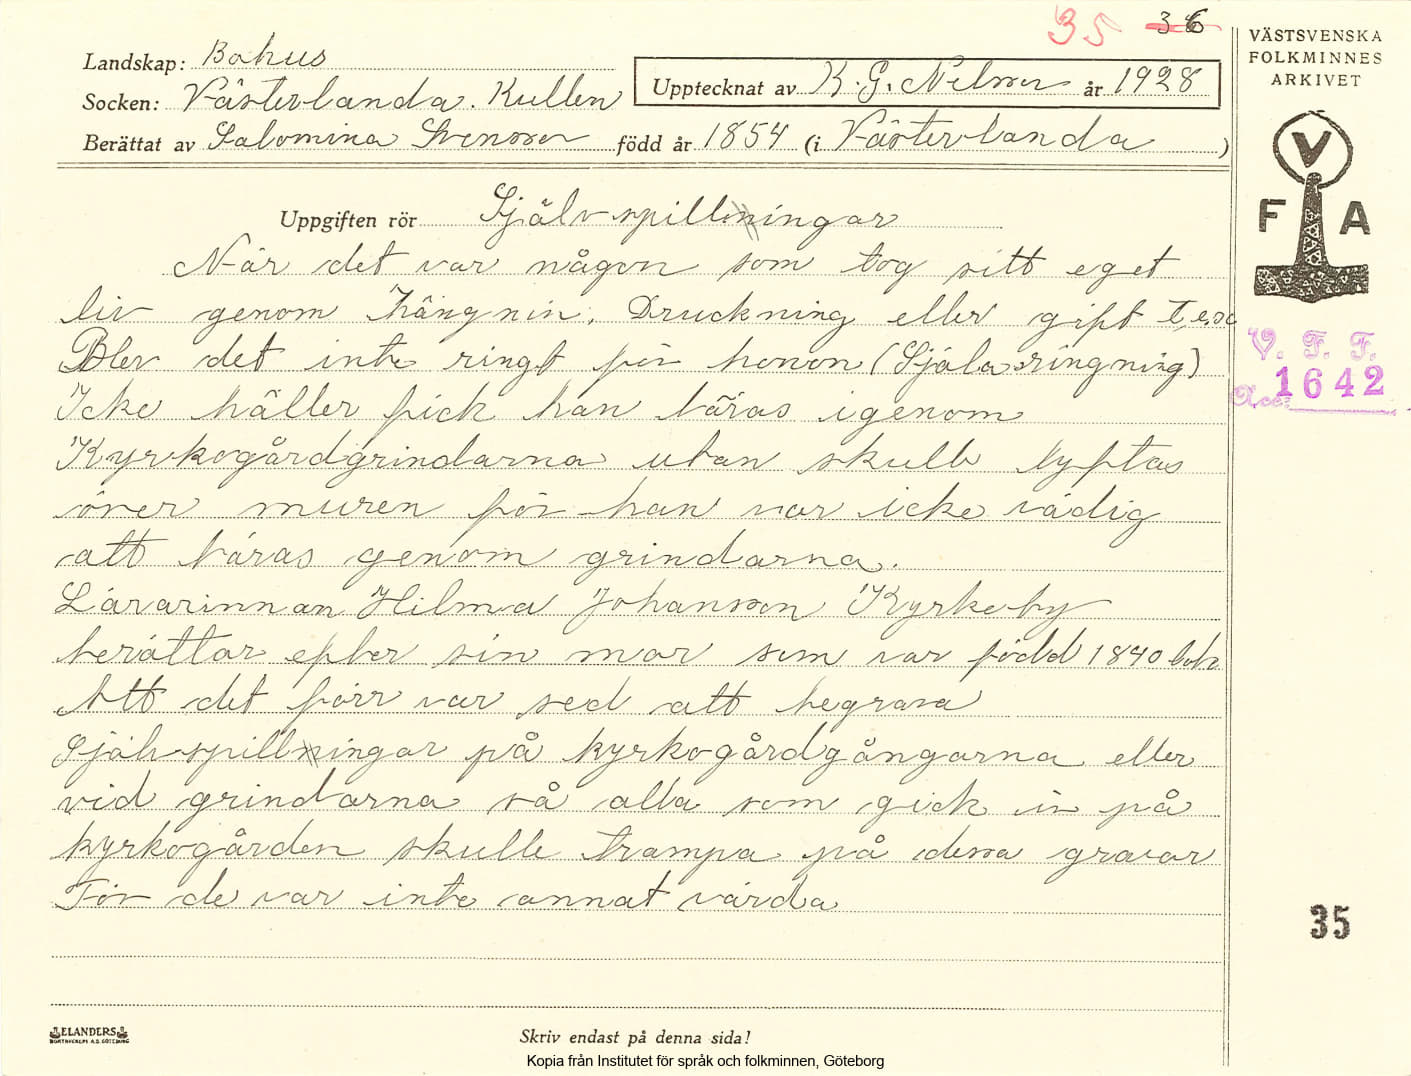 35 36
Landskap: Bohus
Socken: Västerlanda. Kullen
Upptecknat av K. G. Nilsson år 1928
Berättat av Salomina Svensson född år 1854 (i Västerlanda )
Uppgiften rör Självspillningar
När det var någon som tog sitt eget
liv genom hängnin, Druckning eller gift t,ex
Blev det inte ringt för honon (Själaringning)
Icke häller fick han bäras igenom
Kyrkogårdgrindarna utan skulle lyftas
över muren för han var icke vädig
att bäras genom grindarna.
Lärarinnan Hilma Johansson Kyrkeby
berättar efter sin mor som var född 1840
Att det förr var sed att begrava
Självspillningar på kyrkogårdgångarna eller
vid grindarna så alla som gick in på
kyrkogården skulle trampa på dessa gravar
För de var inte annat värda
VÄSTSVENSKA
FOLKMINNES
ARKIVET
V
F A
V. F. F.
Acc: 1642
35
ELANDERS
BOKTRYCKERI A.B. GÖTEBORG
Skriv endast på denna sida!
Kopia från Institutet för språk och folkminnen, Göteborg